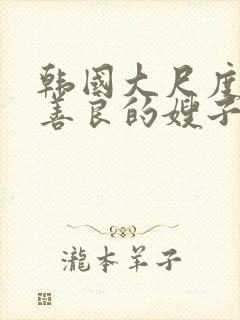 韩国大尺度
善良的嫂子
瀧本羊子